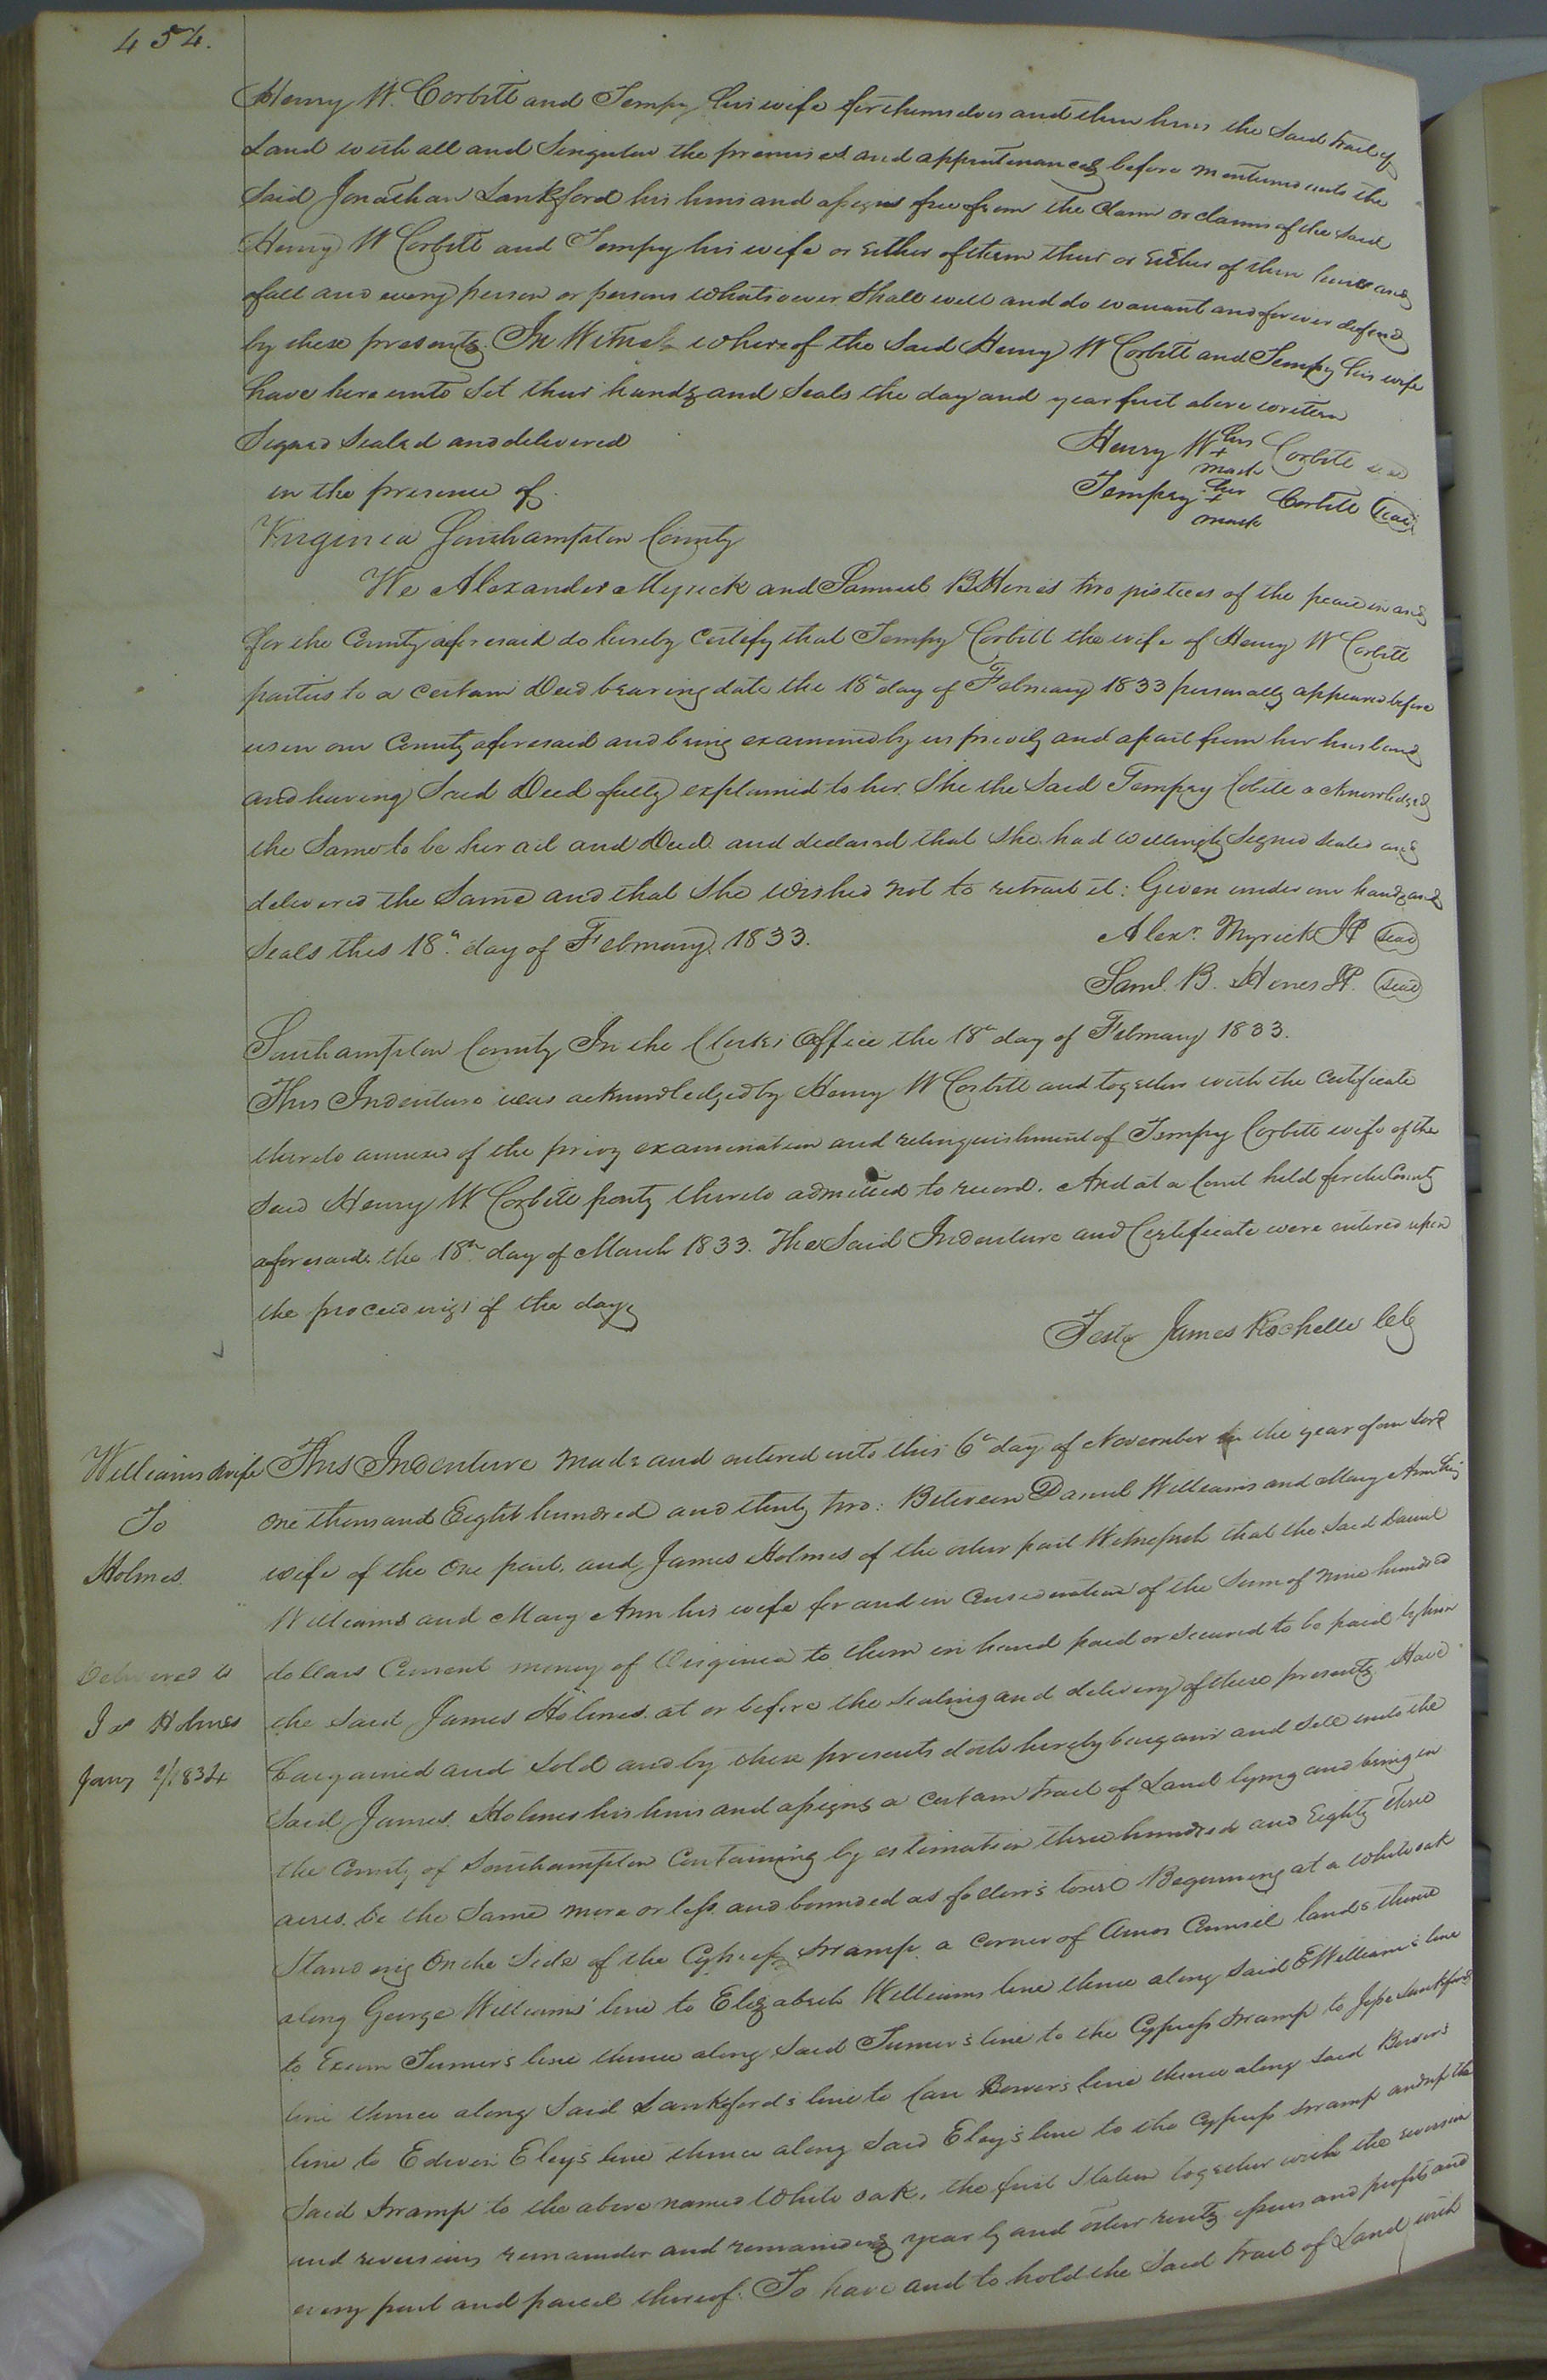 454.
Henry W. Corbitt and Tempy his wife for themselves and their heirs the said tract of
Land with all and Singular the premises and appurtenances before mentioned unto the
Said Jonathan Lankford his heirs and assigns free from the Claim or claims of the said
Henry W Corbitt and Tempy his wife or either of them their or Either of their heirs and
of all and every person or persons whatsoever shall will and do warrant and forever defend
by these presents. In Witness whereof the Said Henry W Corbitt and Tempy his wife
have hereunto Set their hands and Seals the day and year first above written
Signed Sealed and delivered
Henry W his + mark Corbitt seal
in the presence of
Tempy her + mark Corbitt seal
Virginia Southampton County
We Alexander Myrick and Samuel B Hines two justices of the peace in and
for the County aforesaid do hereby certify that Tempy Corbitt the wife of Henry W Corbitt
parties to a certain Deed bearing date the 18th day of February 1833 personally appeared before
us in our County aforesaid and being examined by us privily and apart from her husband
and having said Deed fully explained to her. She the Said Tempy Cobitt acknowledged
the Same to be her act and Deed and declared that she had willingly Signed sealed and
delivered the Same and that she wished not to retract it: Given under our hands and
Seals this 18th day of February. 1833.
Alexr. Myrick JP seal
Saml. B. Hines JP. seal
Southampton County In the Clerks Office the 18th day of February 1833.
This Indenture was acknowledged by Henry W Corbitt and together with the Certificate
thereto annexed of the privy examination and relinquishment of Tempy Corbitt wife of the
said Henry W Corbitt party thereto admitted to record. And at a Court held for the County
aforesaid the 18th day of March 1833. The Said Indenture and Certificate were entered upon
the proceedings of the day
Teste James Rochelle Clk
Williams & wife
To
Holmes.
Delivered to
Js Holmes
Jany 1834
This Indenture made and entered into this 6th day of November in the year of our Lord
one thousand Eight hundred and thirty two: Between Daniel Williams and Mary Ann his
wife of the one part, and James Holmes of the other part Witnesseth that the Said Daniel
Williams and Mary Ann his wife for and in Consideration of the Sum of Nine hundred
dollars Current money of Virginia to them in hand paid or secured to be paid by him
the said James Holmes at or before the Sealing and delivery of these presents Have
bargained and Sold and by these presents doth hereby bargain and Sell unto the
Said James Holmes his heirs and assigns a certain tract of Land lying and being in
the County of Southampton Containing by estimation three hundred and Eighty three
acres. be the Same more or less and bounded as follows towit Beginning at a white oak
Standing on the Side of the Cypress Swamp a corner of Amos Council lands thence
along George Williams' line to Elizabeth Williams line thence along said E Williams's line
to Exum Turner's line thence along Said Turner's line to the Cypress swamp to Jesse Lankford's
line thence along Said Lankford's line to Carr Bowers line thence along said Bowers
line to Edwin Eley's line thence along Said Eley's line to the Cypress swamp and up the
Said swamp to the above named White oak, the first station together with the reversion
and reversions remainder and remainders yearly and other rents issues and profits and
every part and parcel thereof. To have and to hold the Said tract of Land with